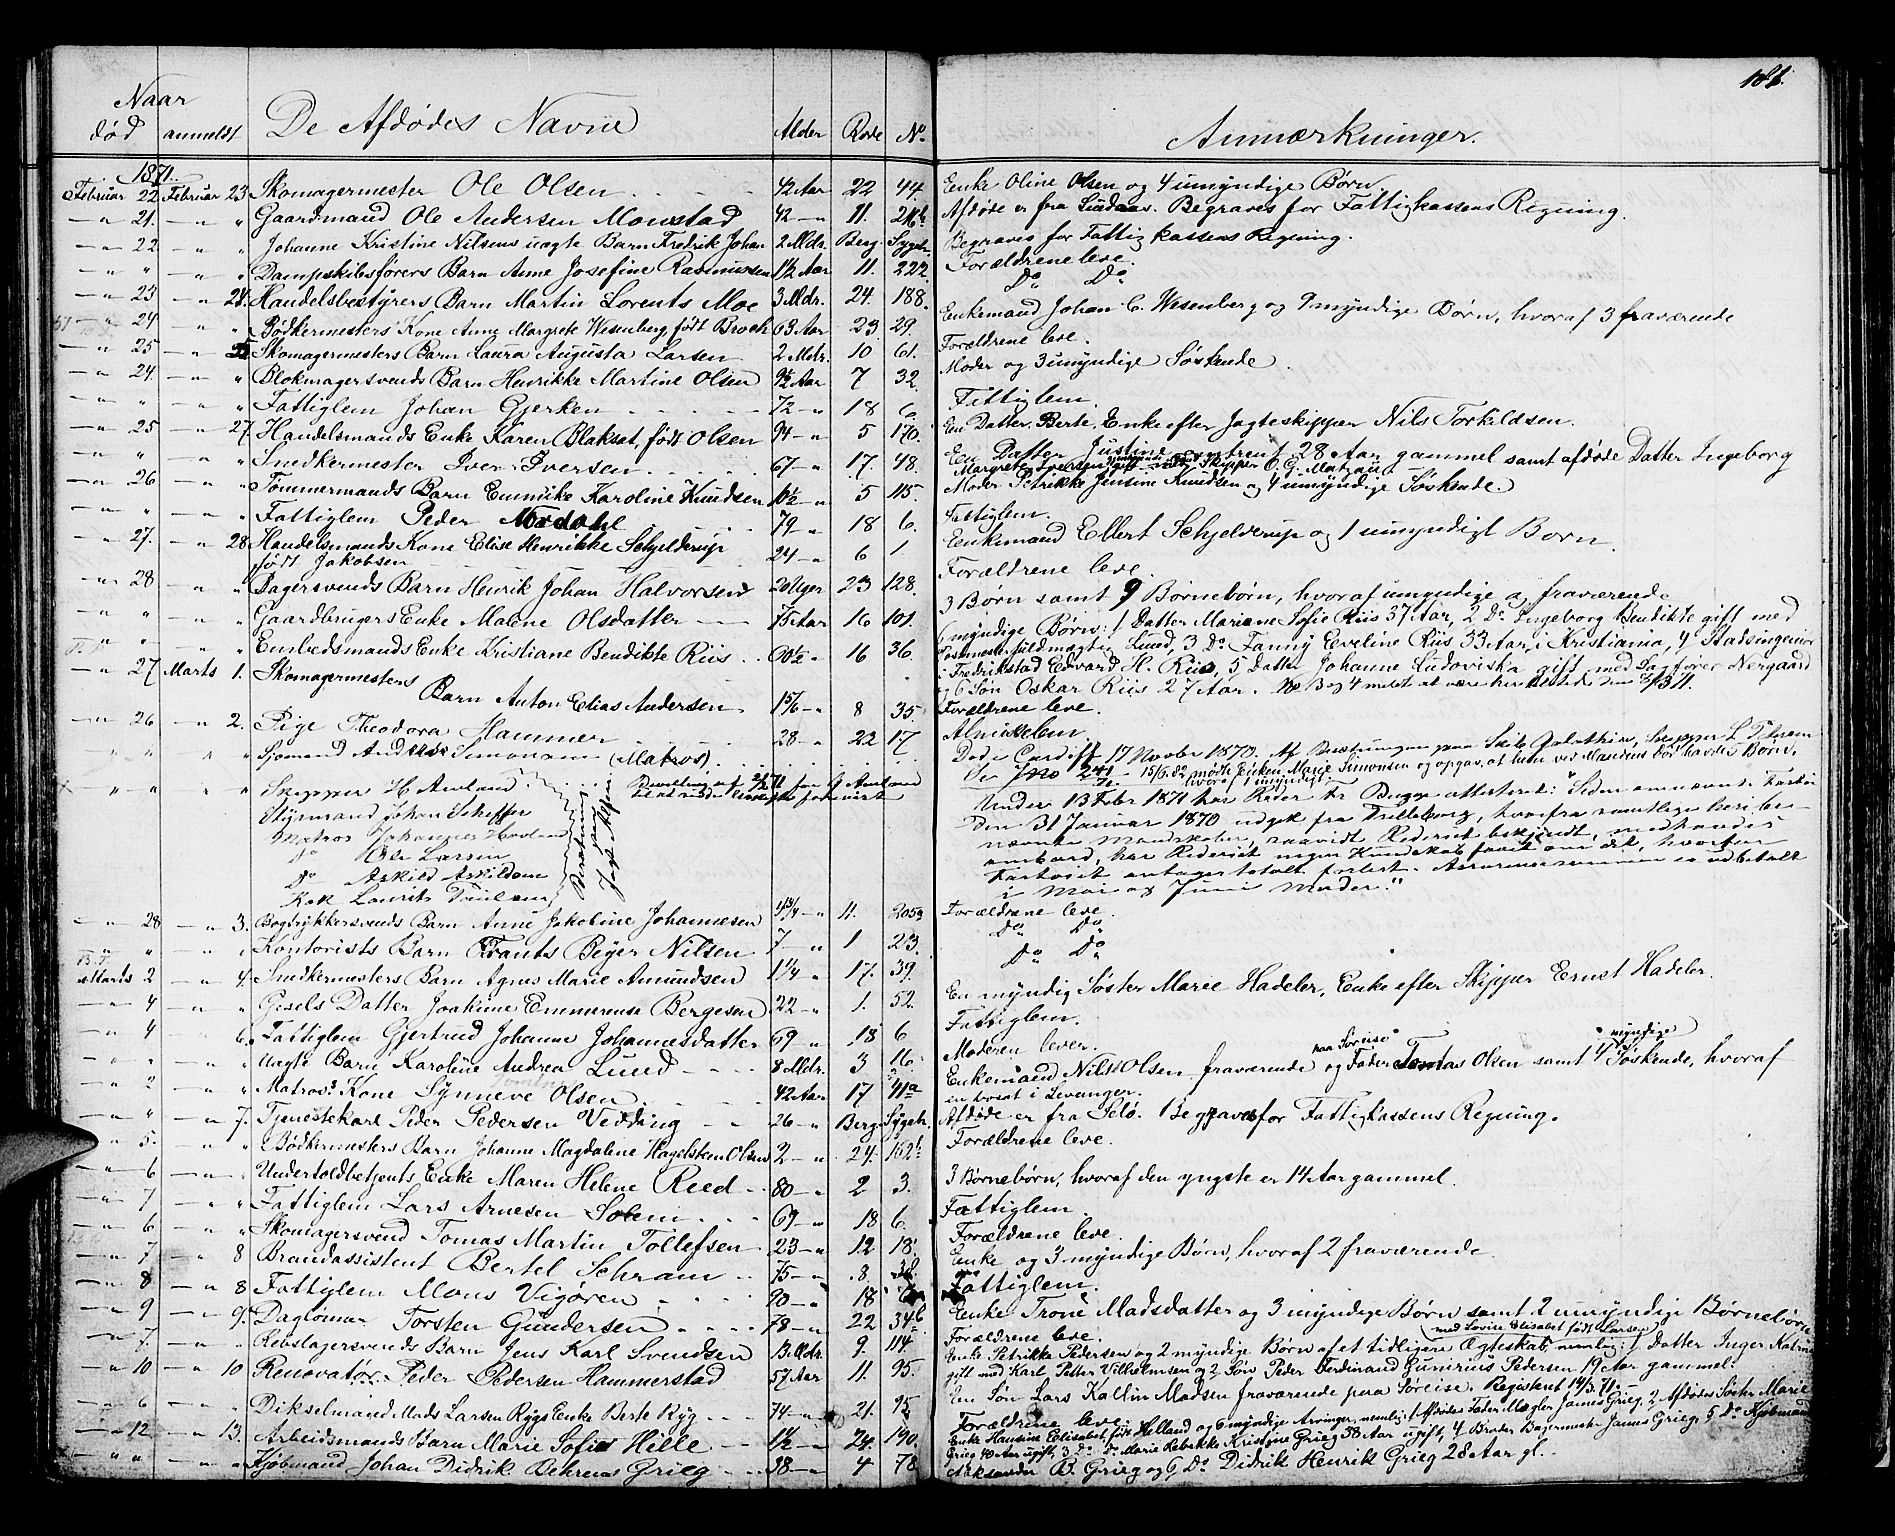 181.
Naar
død anmeldt De Afdødes Navne Alder Rode No. Anmærkninger.
1871.
Februar 22 Februar 23. Skomagermester Ole Olsen 42 Aar 22 44. Enke Oline Olsen og 4 umyndige Børn.
— " — 21. — " — " Gaardmand Ole Andersen Monstad 42 — " 11. Afdøde er fra Lindaas. Begraves for Fattigkassens Regning.
— " — 22 — " — " Johanne Kristine Nilsens uægte Barn Fredrik Johan 2 Mdr. Berg. Sygeh. Begraves for Fattigkassens Regning.
— " — " — " — " Dampskibsførers Barn Anne Josefine Rasmussen 1½ Aar 11. 222 Forældrene leve.
— " — 23 — " — 24. Handelsbestyrers Barn Martin Lorents Moe 3 Mdr. 24. 188. Do Do
— " — 24 — " — " Bødkermesters Kone Anne Margrete Wesenberg, født Broch 63 Aar 23 29. Enkemand Johan C. Wesenberg og 9 myndige Børn, hvoraf 3 fraværende
— " — 25 — " — Skomagermesters Barn Laura Augusta Larsen 2 Mdr. 10 61. Forældrene leve.
— " — 24. — " — " Blokmagersvends Barn Henrikke Martine Olsen 9½ Aar 7 32. Moder og 3 umyndige Søskende.
— " — " — " — " Fattiglem Johan Gjerken 72 — " 18 6. Fattiglem.
— " — 25 — " — 27. Handelsmands Enke Karen Blaksat, født Olsen 94 — " 5 170. En Datter Berte, Enke efter Jagteskipper Nils Torkildsen.
— " — " — " — " Snedkermester Iver Iversen 67 — " 17. 48. En Datter Justine omtrent 28 Aar gammel samt afdøde Datter Ingeborg
Margrete Iversen gift med Skipper O. G. Matzau
— " — 26 — " — " Tømmermands Barn Enmike Karoline Knudsen 10½ — " 5 115. Moder Petrikke Jensine Knudsen og 4 umyndige Søskende.
— " — " — " — " Fattiglem Peder Nordahl 79 — " 18 6. Fattiglem.
— " — 27. — " — 28 Handelsmands Kone Elise Henrikke Schjelderup 24 — " 6 1 Enkemand Ellert Schjelderup og 1 umyndigt Barn.
født Jakobsen
— " — 28 — " — " Bagersvends Barn Henrik Johan Halvorsen 20 Uger 23 128. Forældrene leve.
— " — " — " — " Gaardbrugers Enke Malene Olsdatter 75 Aar 16 101. 3 Børn samt 9 Børnebørn, hvoraf umyndige og fraværende
— " — " — " — " Embedsmands Enke Kristiane Bendikte Riis 60½ " 16 36. 6 myndige Børn: 1 Datter Mariane Sofie Riis 37 Aar, 2 Do Ingeborg Bendikte gift med
Postmesterfuldmægtig Lund, 3 Do Fanny Eveline Riis 33 Aar, i Kristiania, 4 Stadsingeniør
i Fredrikstad Edvard H. Riis, 5 Datter Johanne Ludoviska gift med Sagfører Nergaard
og 6 Søn Oskar Riis 27 Aar.
— " — 27 Marts 1. Skomagermesters
Barn Anton Elias Andersen 1 5/6 — " 8 35. Forældrene leve.
— " — 26 — " — 2. Pige Theodora Hammer 28 — " 22 17 Almisselem.
" " " " Sjømand Andreas Simonsen (Matros) Død i Cardiff 17 Novbr 1870. Af Besætningen paa Skib Galathea, Skipper
15/6.82 mødte Enken Marie Simonsen og opgav, at hun ved Mandens Død havde Børn,
hvoraf 1 umyndigt.
" " " " Skipper H. Amland
Styrmand Johan Scheffer
Matros Johannes Hovland
Do Ole Larsen
Do Askild Askildsen
Kok Laurits
Besætning
Under 13 Febr 1871 har Reder attesteret: "Siden omnævnte Fartøi
den 31 Januar 1870 udgik fra Trelleborg, hvorfra samtlige heri be-
nævnte Mandskaber, saavidt Rederiet bekjendt, medhavdes
ombord, har Rederiet ingen Kundskab faaet om det, hvorfor
Fartøiet antages totalt forlist. Assurancesummen er udbetalt
i Mai og Juni Maaned."
— " — 28 — " — 3. Bogtrykkersvends Barn Anne Jakobine Johannesen 4¾ — " 11. 205a Forældrene leve.
" " " " Kontorists Barn Frants Beyer Nilsen 7 — " 1 23. Do Do
Marts 2 — " — 4. Snedkermesters Barn Agnes Marie Amundsen 1¼ " 17. 39. Do Do
— " — 4 — " — " Datter Joakime Emmerense Bergesen 22 " 1. 52. En myndig Søster Marie Hadeler, Enke efter Skipper Ernst Hadeler.
— " — 4 6. Fattiglem Gjertrud Johanne Johannesdatter 69 — " 18 6 Fattiglem.
— " — " — " — " Uægte Barn Karoline Andrea Lund 8 Mdr. 3 16 Moderen lever.
— " — 2 — " — " Matros' Kone Synneve Olsen 42 Aar 17 41a Enkemand Nils Olsen fraværende paa Søreise og Fader Tomas Olsen samt 4 myndige Søskende, hvoraf
en bosat i Levanger.
— " — " — " — 7. Tjenestekarl Peder Pedersen Vedding 26 — " Berg. Sygeh. Afdøde er fra Selö. Begraves for Fattigkassens Regning.
— " — 5. — " — " Bødkermesters Barn Johanne Magdalene Hagelsteen Olsen 2 — " 24. 162b Forældrene leve.
— " — 6 — " — " Undertoldbetjents Enke Maren Helene Reed 80 — " 2 3. 3 Børnebørn, hvoraf den yngste er 14 Aar gammel.
— " — 7 — " — " Fattiglem Lars Arnesen Solem 69 — " 18 6. Fattiglem.
— " — 6 — " — " Skomagersvend Tomas Martin Tollefsen 23 — " 12 18. Forældrene leve.
— " — 7 — " — 8 Brandassistent Bertel Schram 75 — " 8 38. Enke og 3 myndige Børn, hvoraf 2 fraværende.
— " — 8 — " — 8 Fattiglem Mons Vigøren 90 — " 18 Fattiglem.
— " — 9 — " — 9. Daglønner Torsten Gundersen 78 — " 22 34b Enke Trone Madsdatter og 3 myndige Børn samt 2 umyndige Børnebørn
— " — 7. — " — " Rebslagersvends Barn Jens Karl Svendsen 13 Mdr. 9. 114. Forældrene leve.
— " — 10 — " — 10 Renovatør Peder Pedersen Hammerstad 57 Aar 11. 95. Enke Petrikke Pedersen og 2 myndige Børn af et tidligere Ægteskab med Lovise Elisabet født Larsen, nemlig: 1 Datter Inger Katrine
gift med Karl Petter Vilhelmsen og 2 Søn Peder Ferdinand Gunerius Pedersen 19 Aar gammel.
— " — 6 — " — " Dikselmand Mads Larsen Rygs Enke Berte Ryg 74 — " 21. 95 En Søn Lars Kallin Madsen fraværende paa Søreise. Registrert 14/3.71.
— " — 12 — " — 13. Arbeidsmands Barn Marie Sofie Hille 1½ — " 24. 190. Forældrene leve.
— " — " — " — " Kjøbmand Johan Didrik Behrens Grieg 38 — " 4 78 Enke Hansine Elisabet, født Helland og 6 myndige Arvinger, nemlig: 1 Afdødes Fader Mægler James Grieg, 2 Afdødes Søster Marie
Grieg 40 Aar ugift, 3 Do Do Marie Rebekka Kristine Grieg 38 Aar ugift, 4 Broder Bagermester James Grieg, 5 Do Kjøbmand
Aleksander B. Grieg og 6 Do Didrik Henrik Grieg 28 Aar gl.